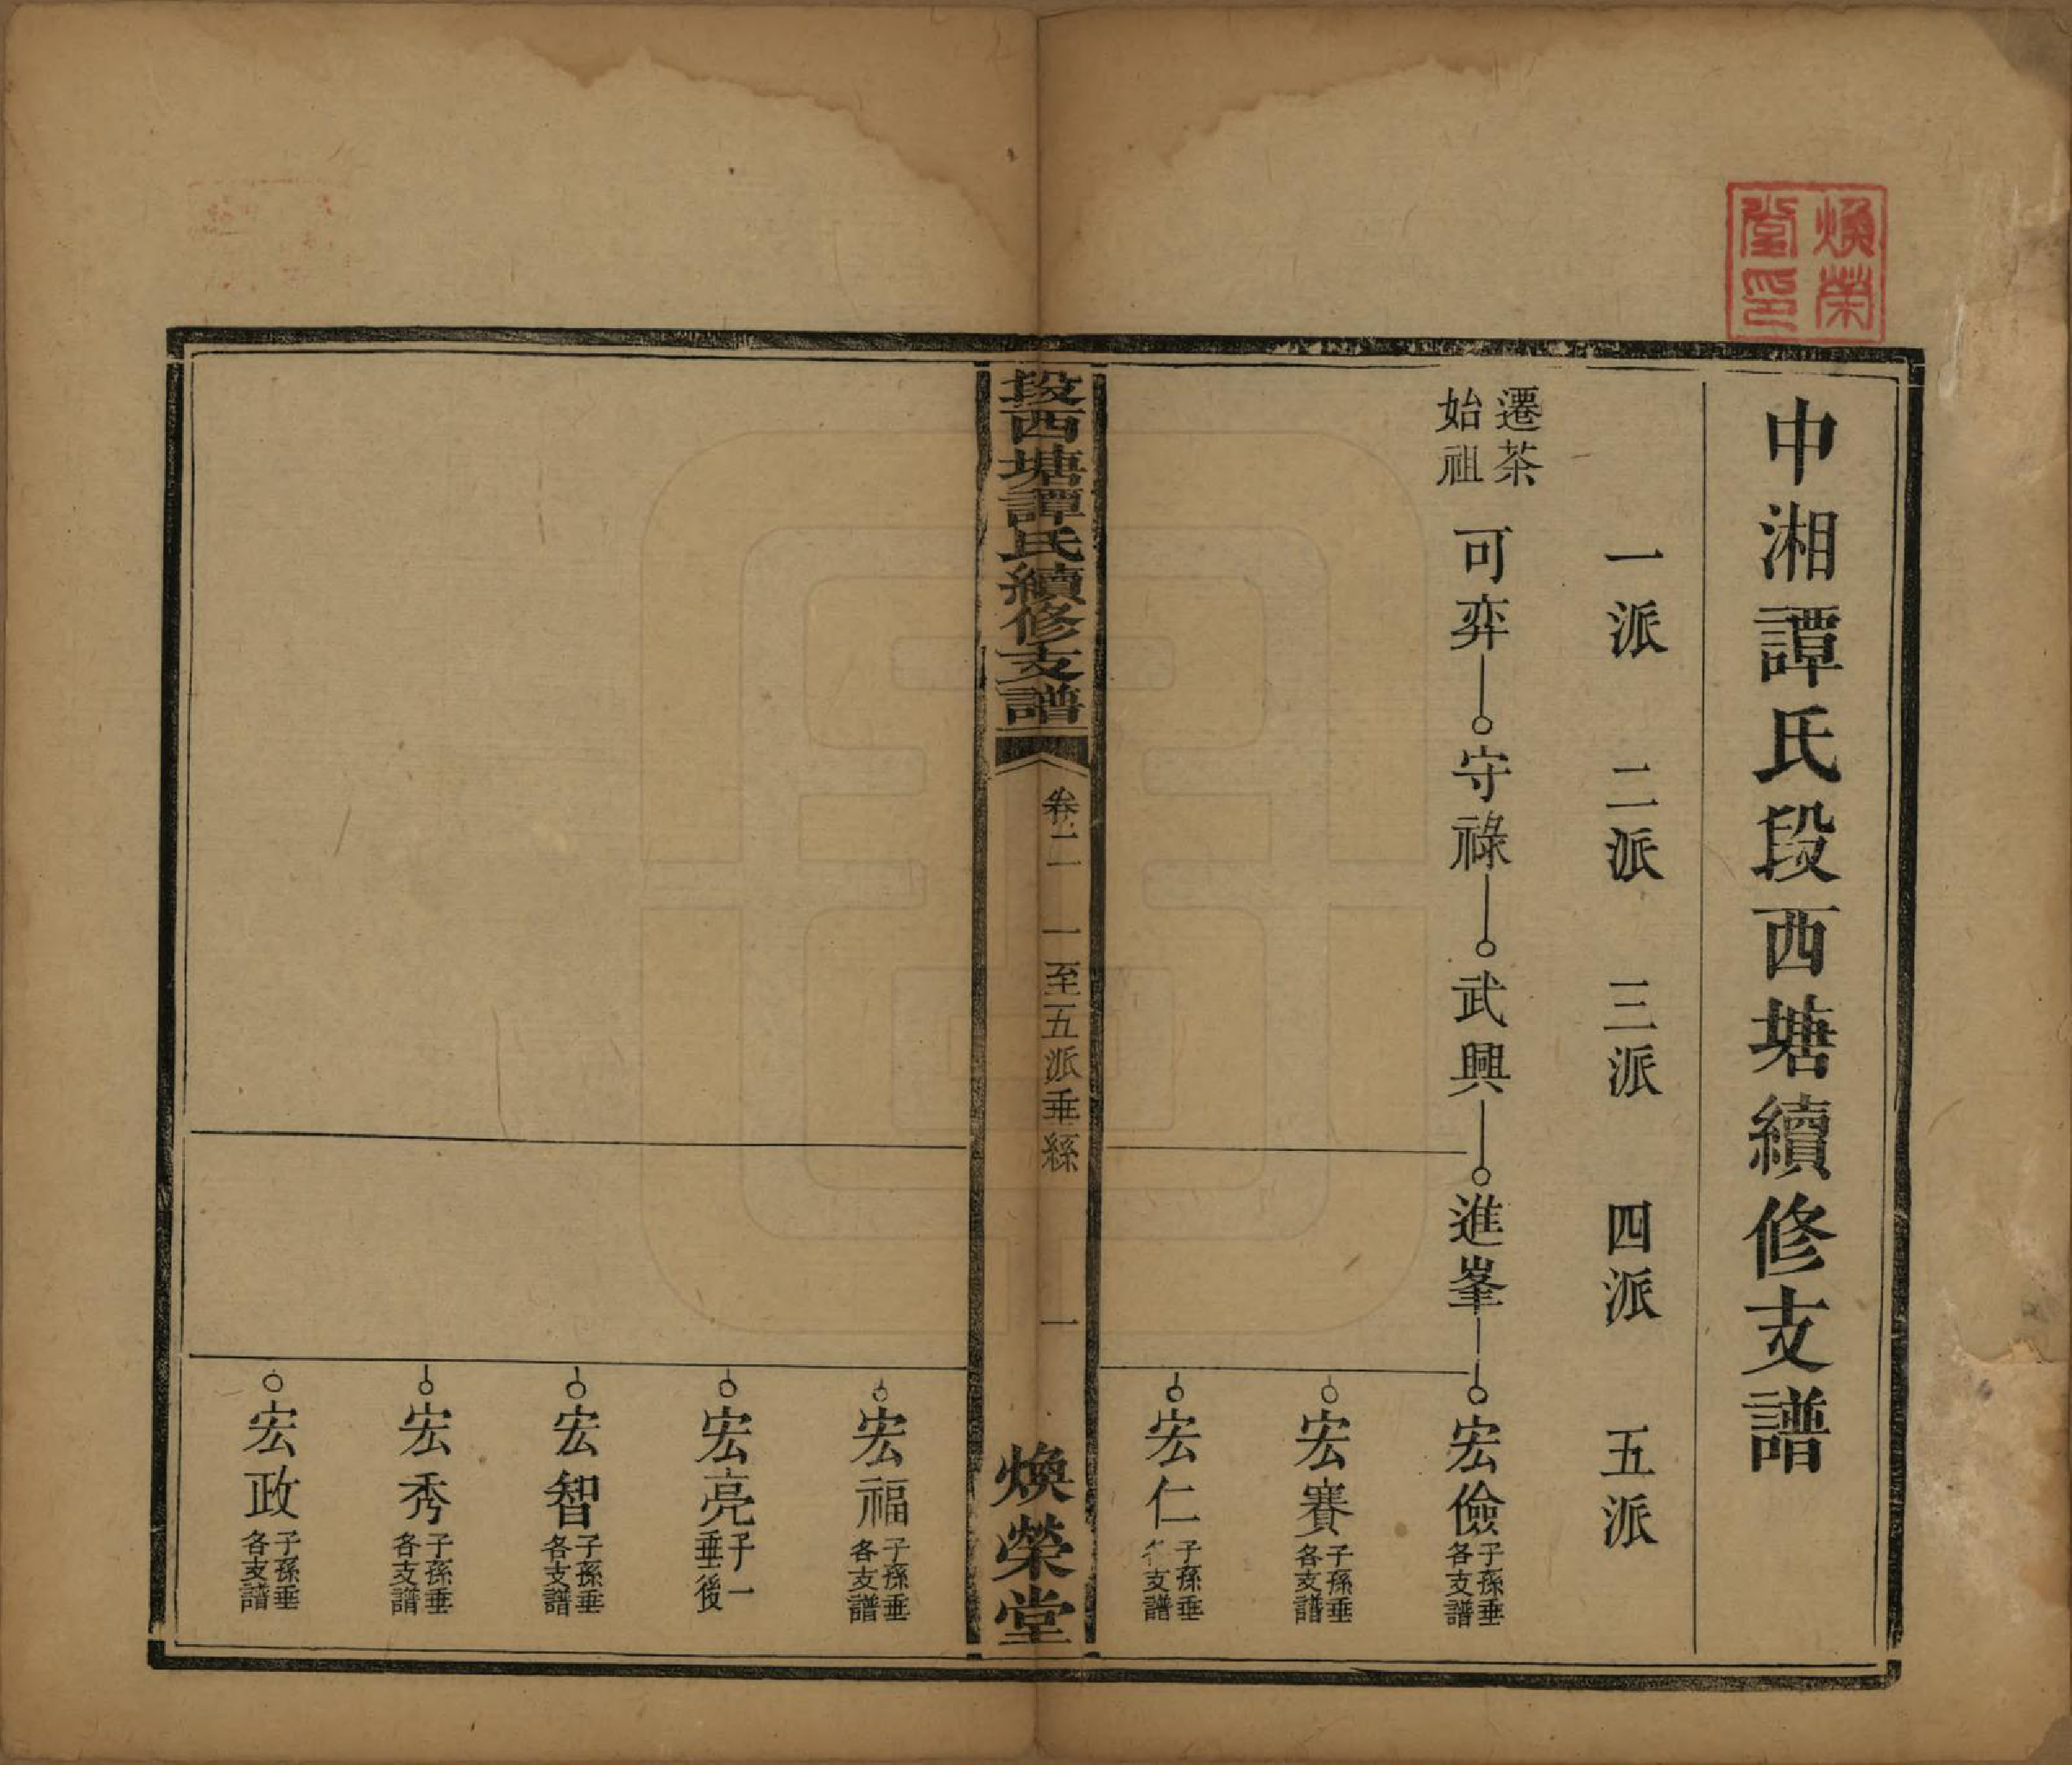 煥榮
堂印
中湘譚氏段西塘續修支譜
一派 二派 三派 四派 五派
遷茶
始祖
可弈 守祿 武興 進峯 宏儉 子孫垂
各支譜
宏賽 子孫垂
各支譜
宏仁 子孫垂
各支譜
段西塘譚氏續修支譜 卷二 一至五派垂絲 一 煥榮堂
宏福 子孫垂
各支譜
宏亮 子一
垂後
宏智 子孫垂
各支譜
宏秀 子孫垂
各支譜
宏政 子孫垂
各支譜